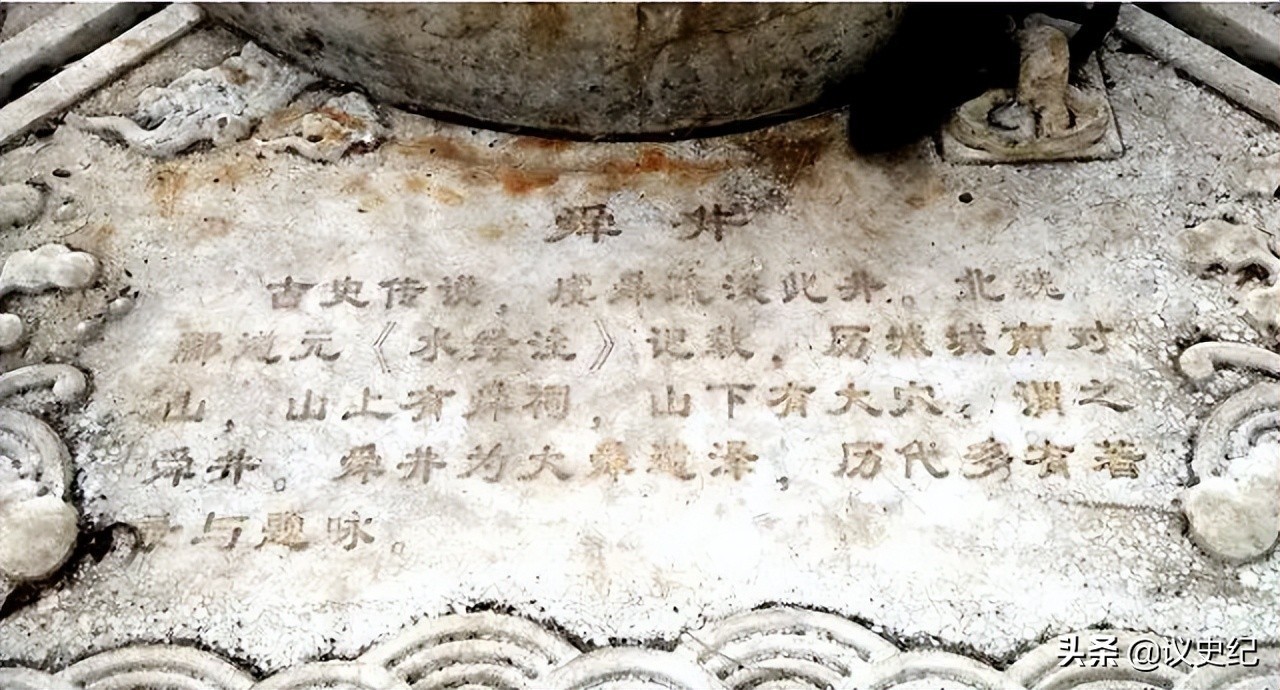 舜井
古史传说，虞舜淘浚此井。北魏
郦道元《水经注》记载，历城城南对
山，山上有舜祠，山下有大穴，谓之
舜井。舜井为大舜遗泽，历代多有著
录与题咏。
头条 @议史纪